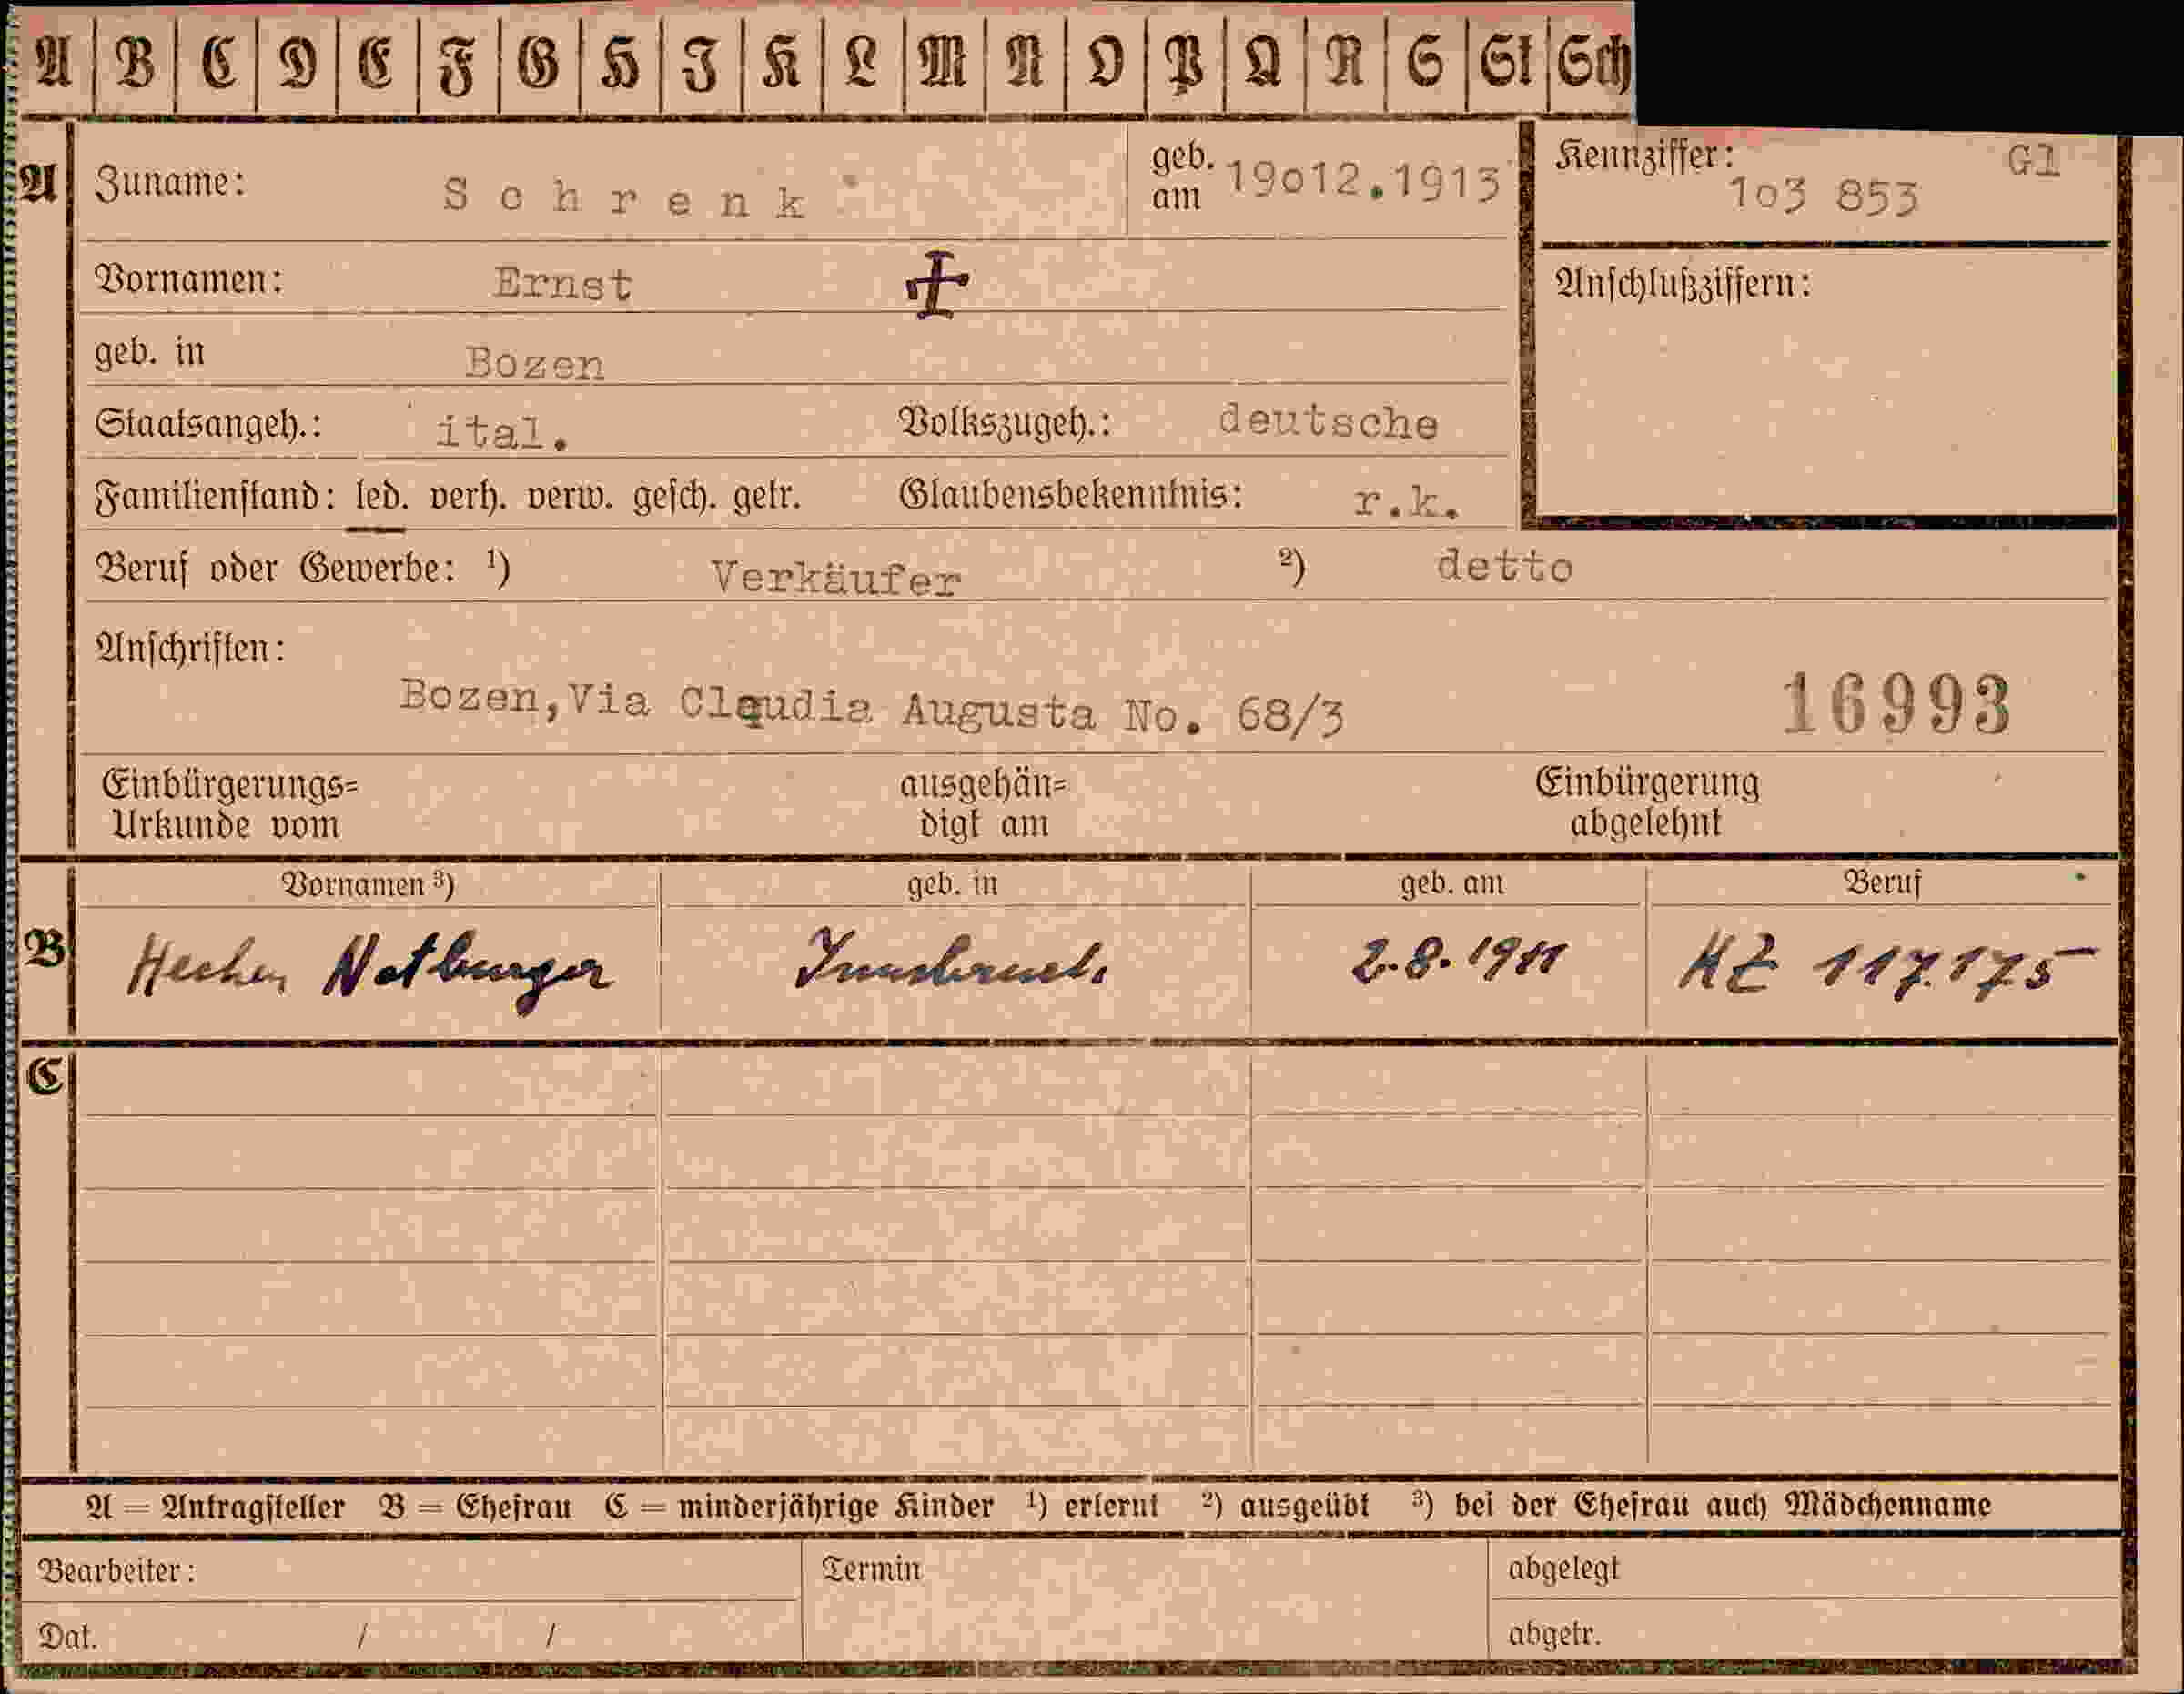 A B C D E F G H I K L M N O P Q R S St Sch
A Zuname: Schrenk geb. am 19o12.1913 Kennziffer: 1o3 853 Gl
Vornamen: Ernst Anschlußziffern:
geb. in Bozen
Staatsangeh.: ital. Volkszugeh.: deutsche
Familienstand: led. verh. verw. gesch. getr. Glaubensbekenntnis: r.k.
Beruf oder Gewerbe: 1) Verkäufer 2) detto
Anschriften:
Bozen,Via Claudia Augusta No. 68/3 16993
Einbürgerungs= ausgehän= Einbürgerung
Urkunde vom digt am abgelehnt
Vornamen 3) geb. in geb. am Beruf
B Notburga Innsbruck 2.8.1911 KZ 117.175
C
A = Antragsteller B = Ehefrau C = minderjährige Kinder 1) erlernt 2) ausgeübt 3) bei der Ehefrau auch Mädchenname
Bearbeiter: Termin abgelegt
Dat. / / abgetr.